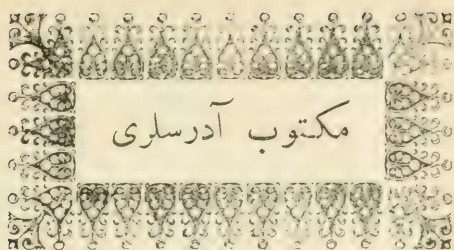 مكتوب آدرسلرى